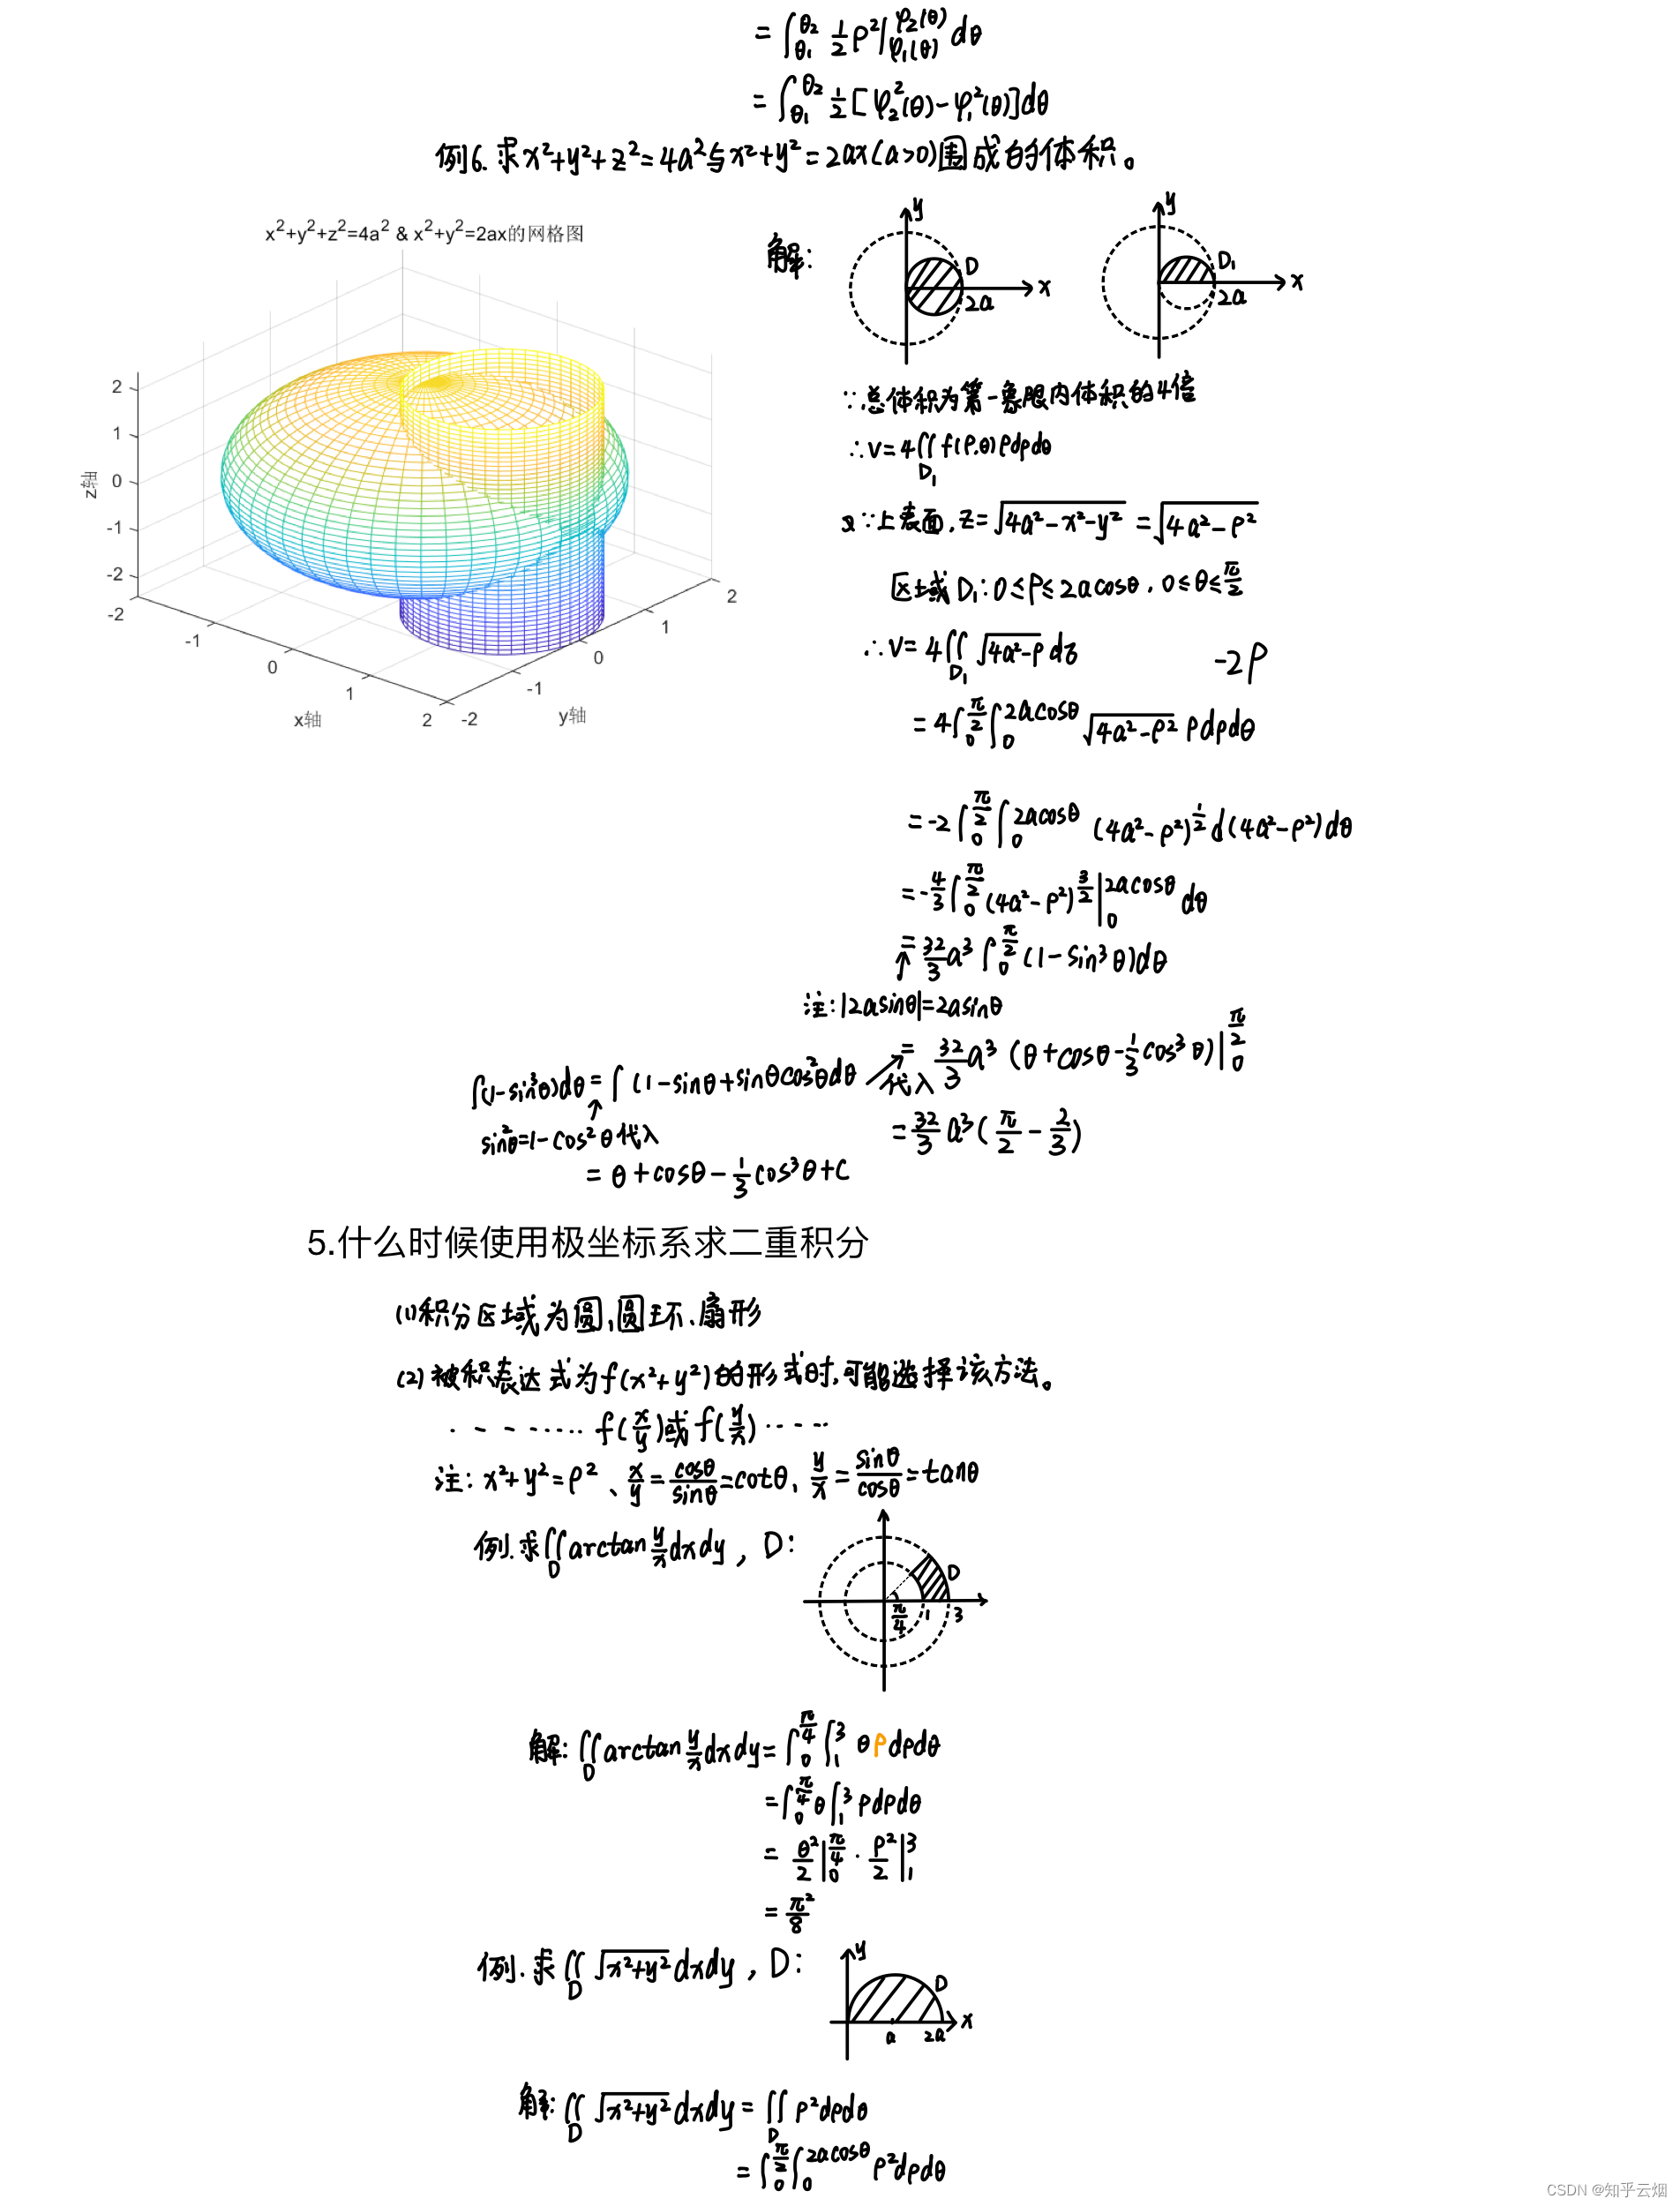 = ∫_{θ₁}^{θ₂} ½ρ²|_{φ₁(θ)}^{φ₂(θ)} dθ
= ∫_{θ₁}^{θ₂} ½[φ₂²(θ)-φ₁²(θ)]dθ
例6. 求x²+y²+z²=4a²与x²+y²=2ax(a>0)围成的体积。
x²+y²+z²=4a² & x²+y²=2ax的网格图
2
1
0
-1
-2
z轴
-2
-1
0
1
2
x轴
-2
-1
0
1
2
y轴
解:
y
D
x
2a
y
D₁
x
2a
∵总体积为第一象限内体积的4倍
∴V=4∬_{D₁} f(ρ,θ)ρdρdθ
又∵上表面,z=√(4a²-x²-y²) =√(4a²-ρ²)
区域D₁:0≤ρ≤2acosθ,0≤θ≤π/2
∴V=4∬_{D₁} √(4a²-ρ) dσ
-2ρ
=4∫_0^{π/2}∫_0^{2acosθ} √(4a²-ρ²) ρdρdθ
=-2∫_0^{π/2}∫_0^{2acosθ} (4a²-ρ²)^{1/2} d(4a²-ρ²)dθ
=-4/3∫_0^{π/2}(4a²-ρ²)^{3/2}|_0^{2acosθ} dθ
=32/3 a³∫_0^{π/2}(1-sin³θ)dθ
↑
注:|2asinθ|=2asinθ
= 32/3 a³(θ+cosθ-1/3cos³θ)|_0^{π/2}
∫(1-sin³θ)dθ=∫(1-sinθ+sinθcos²θdθ
代入
↑
sin²θ=1-cos²θ代入
=32/3 a³(π/2-2/3)
= θ+cosθ-1/3cos³θ+C
5.什么时候使用极坐标系求二重积分
(1)积分区域为圆、圆环、扇形
(2)被积表达式为f(x²+y²)的形式时,可能选择该方法。
·-------··· f(x/y)或f(y/x)·----
注:x²+y²=ρ²、x/y=cosθ/sinθ=cotθ、y/x=sinθ/cosθ=tanθ
例.求∬_D arctan y/x dxdy,D:
D
π/4
1
3
解:∬_D arctan y/x dxdy=∫_0^{π/4}∫_1^3 θρdρdθ
=∫_0^{π/4}θ∫_1^3 ρdρdθ
= θ²/2|_0^{π/4}·ρ²/2|_1^3
=π²/8
例.求∬_D √(x²+y²) dxdy,D:
y
D
x
a
2a
解:∬_D √(x²+y²) dxdy=∬_D ρ²dρdθ
=∫_0^{π/2}∫_0^{2acosθ} ρ²dρdθ
CSDN @知乎云烟